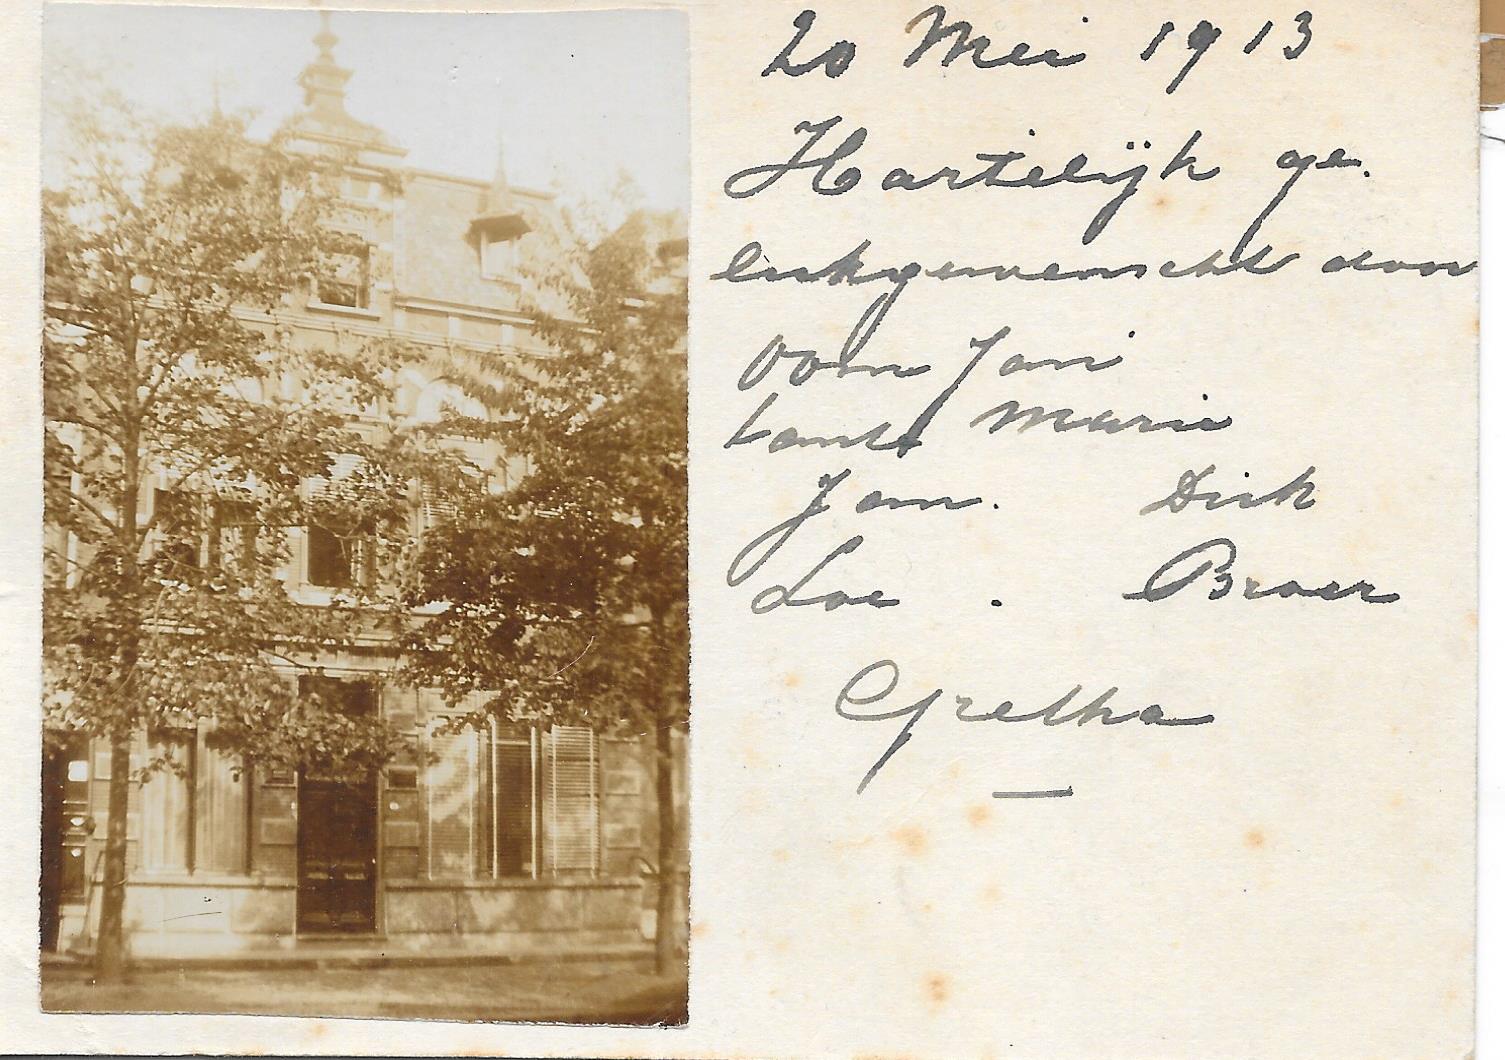 20 Mei 1913
Hartelijk ge.
lukgewenscht door
Oom Jan
tante Marie
Jan. Dirk
Loe . Broer
Gretha